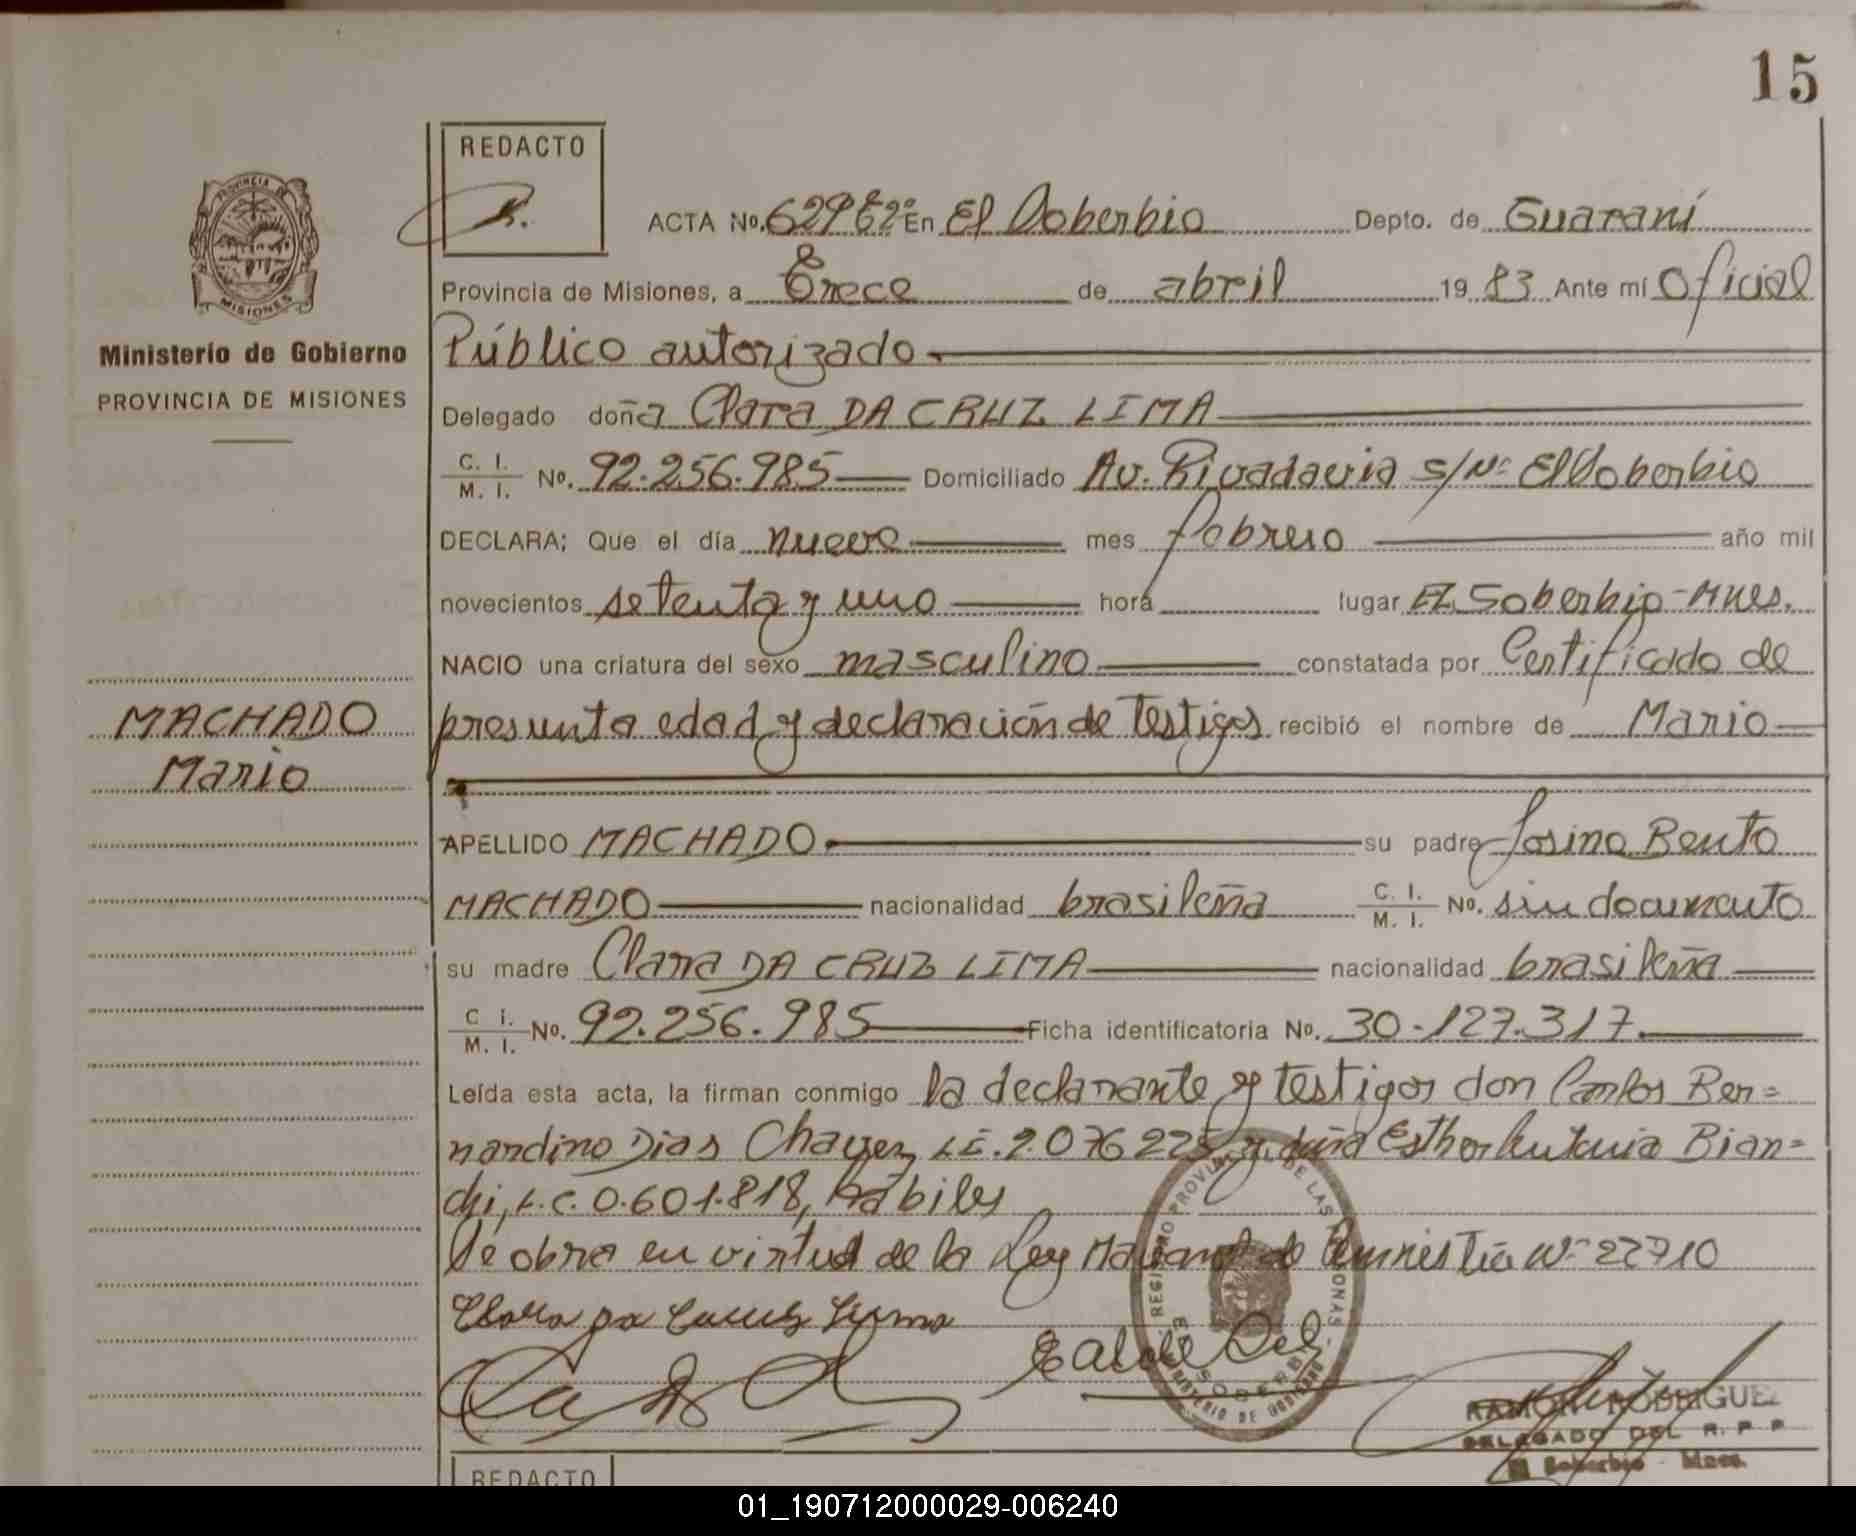 15
REDACTO
ACTA No. En El Soberbio Depto. de Guaraní
Provincia de Misiones, a Trece de abril 1983 Ante mí Oficial
Público autorizado
Delegado doña Clara DA CRUZ LIMA
C. I. M. I. No. 92.256.985 Domiciliado Av. Rivadavia s/Nº El Soberbio
DECLARA; Que el día nueve mes febrero año mil
novecientos setenta y uno hora lugar El Soberbio-Mnes.
NACIO una criatura del sexo masculino constatada por Certificado de
presunta edad y declaración de Testigos recibió el nombre de Mario
APELLIDO MACHADO su padre Josino Bento
MACHADO nacionalidad brasileña C. I. M. I. No. sin documento
su madre Clara DA CRUZ LIMA nacionalidad brasileña
C i. M. I. No. 92.256.985 Ficha identificatoria No. 30.127.317
Leída esta acta, la firman conmigo la declarante y testigos don Carlos Ber=
nardino Dias Chavez, L.E. 2.076.225 y doña Esther Bian=
chi, L.C. 0.601.818, hábiles
Se obra en virtud de la Ley de Amnistía Nº 22710
Clara da Cruz Lima
REGISTRO PROVINCIAL DE LAS PERSONAS
EL SOBERBIO
MINISTERIO DE GOBIERNO
RAMON RODRIGUEZ
DELEGADO DEL R. P. P.
El Soberbio - Mnes.
REDACTO
PROVINCIA DE
MISIONES
Ministerio de Gobierno
PROVINCIA DE MISIONES
MACHADO
Mario
01_190712000029-006240